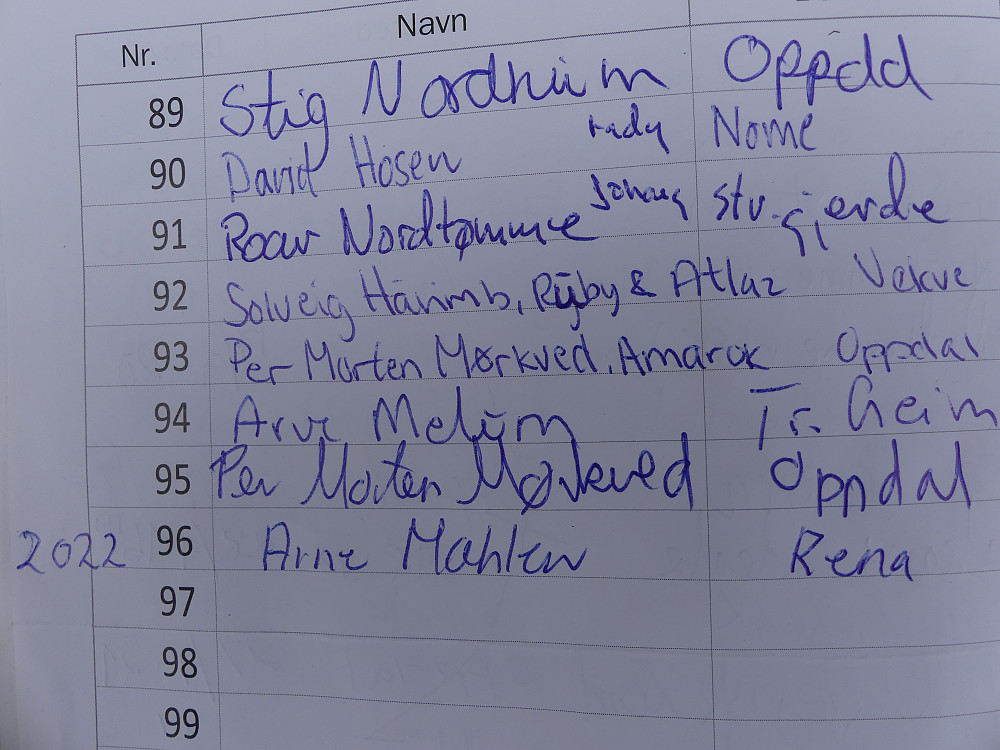 Nr. Navn
89 Stig Nordhúim Oppdal
90 David Hosen Nome
91 Roar Nordtømme
92 Solveig Ruby & Atlaz
93 Per Morten Mørkved, Amarok Oppdal
94 Arve Melum
95 Per Morten Mørkved Oppdal
2022 96 Arne Mahlen Rena
97
98
99